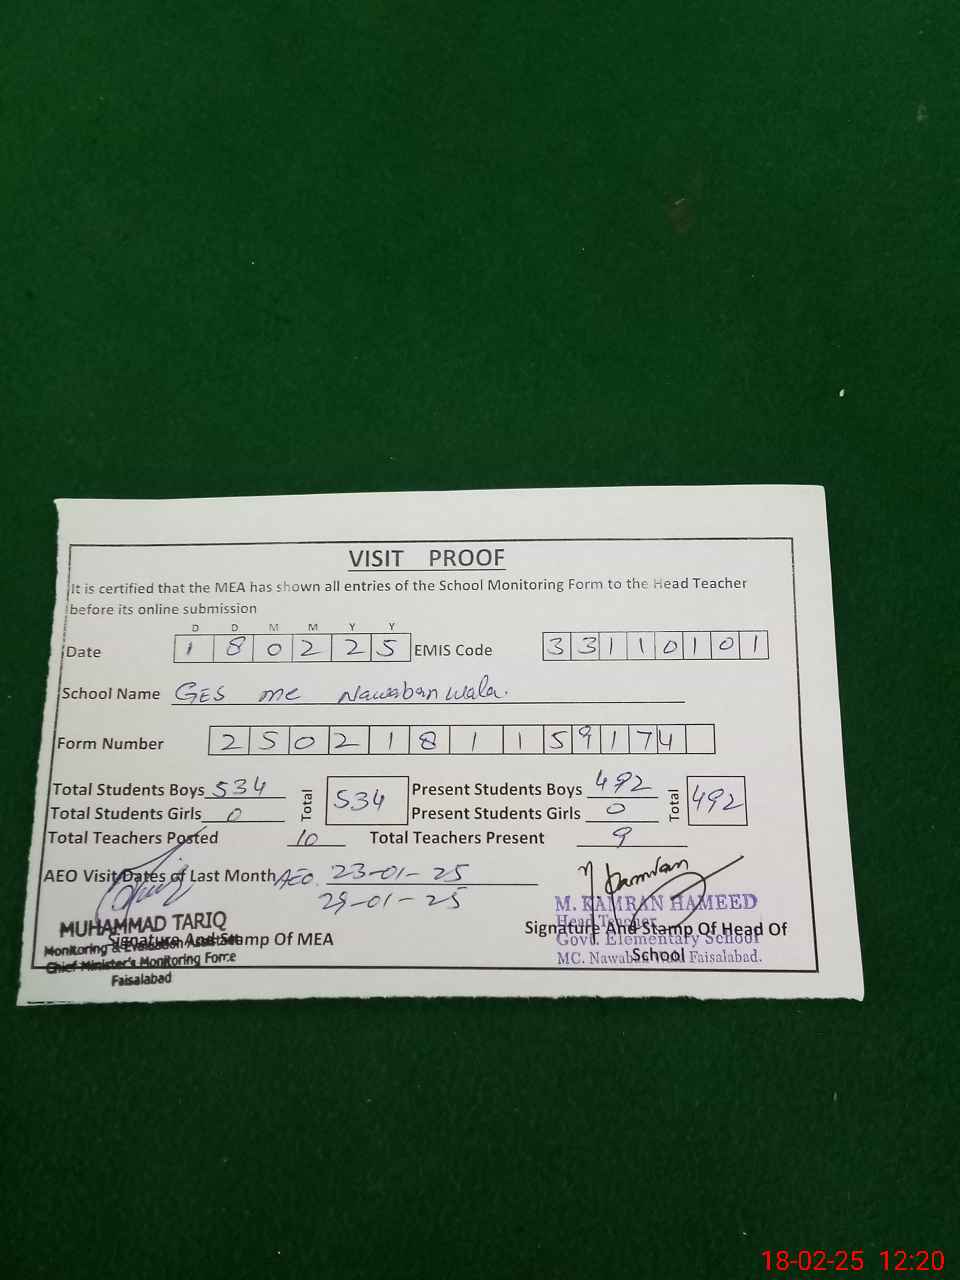 VISIT PROOF
It is certified that the MEA has shown all entries of the School Monitoring Form to the Head Teacher
before its online submission
D D M M Y Y
Date 1 8 0 2 2 5 EMIS Code 3 3 1 1 0 1 0 1
School Name GES mc Nawaban wala.
Form Number 2 5 0 2 1 8 1 1 5 9 1 7 4
Total Students Boys 534 Total 534 Present Students Boys 492 Total 492
Total Students Girls 0 Present Students Girls 0
Total Teachers Posted 10 Total Teachers Present 9
AEO Visit Dates of Last Month AEO. 23-01-25
29-01-25
MUHAMMAD TARIQ
Signature And Stamp Of MEA
Monitoring & Evaluation Assistant
Chief Minister's Monitoring Force
Faisalabad
M. Kamran
M. KAMRAN HAMEED
Head Teacher
Signature And Stamp Of Head Of
Govt. Elementary School
School
MC. Nawaban Wala Faisalabad.
18-02-25 12:20